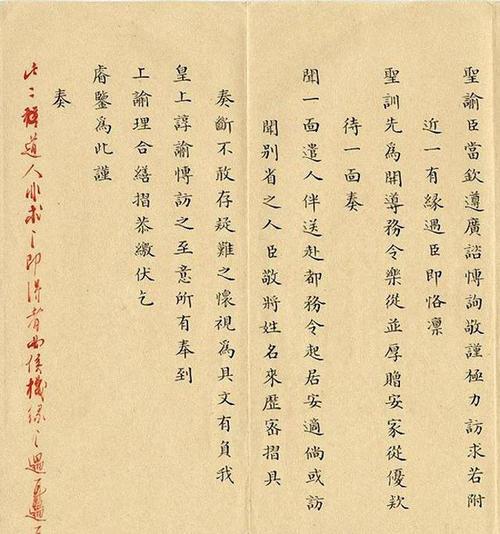 聖諭臣當欽遵廣諮慱詢敬謹極力訪求若附
近一有緣遇臣即恪凛
聖訓先為開導務令樂從並厚贈安家從優欵
待一面奏
聞一面遣人伴送赴都務令起居安適倘或訪
聞別省之人臣敬將姓名來歷密摺具
奏斷不敢存疑難之懷視為具文有負我
皇上諄諭慱訪之至意所有奉到
上諭理合繕摺恭繳伏乞
睿鑒為此謹
奏
此種道人非求之即得者由俟機緣之遇